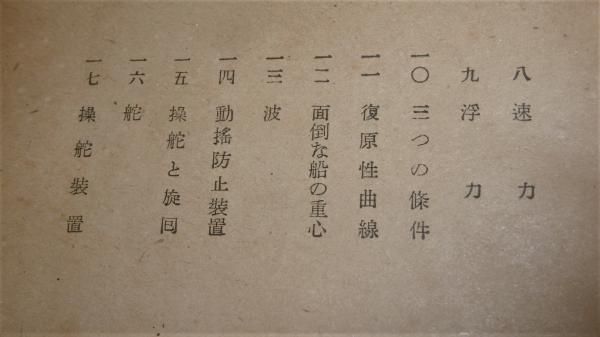 八 速力
九 浮力
一〇 三つの條件
一一 復原性曲線
一二 面倒な船の重心
一三 波
一四 動搖防止裝置
一五 操舵と旋囘
一六 舵
一七 操舵裝置